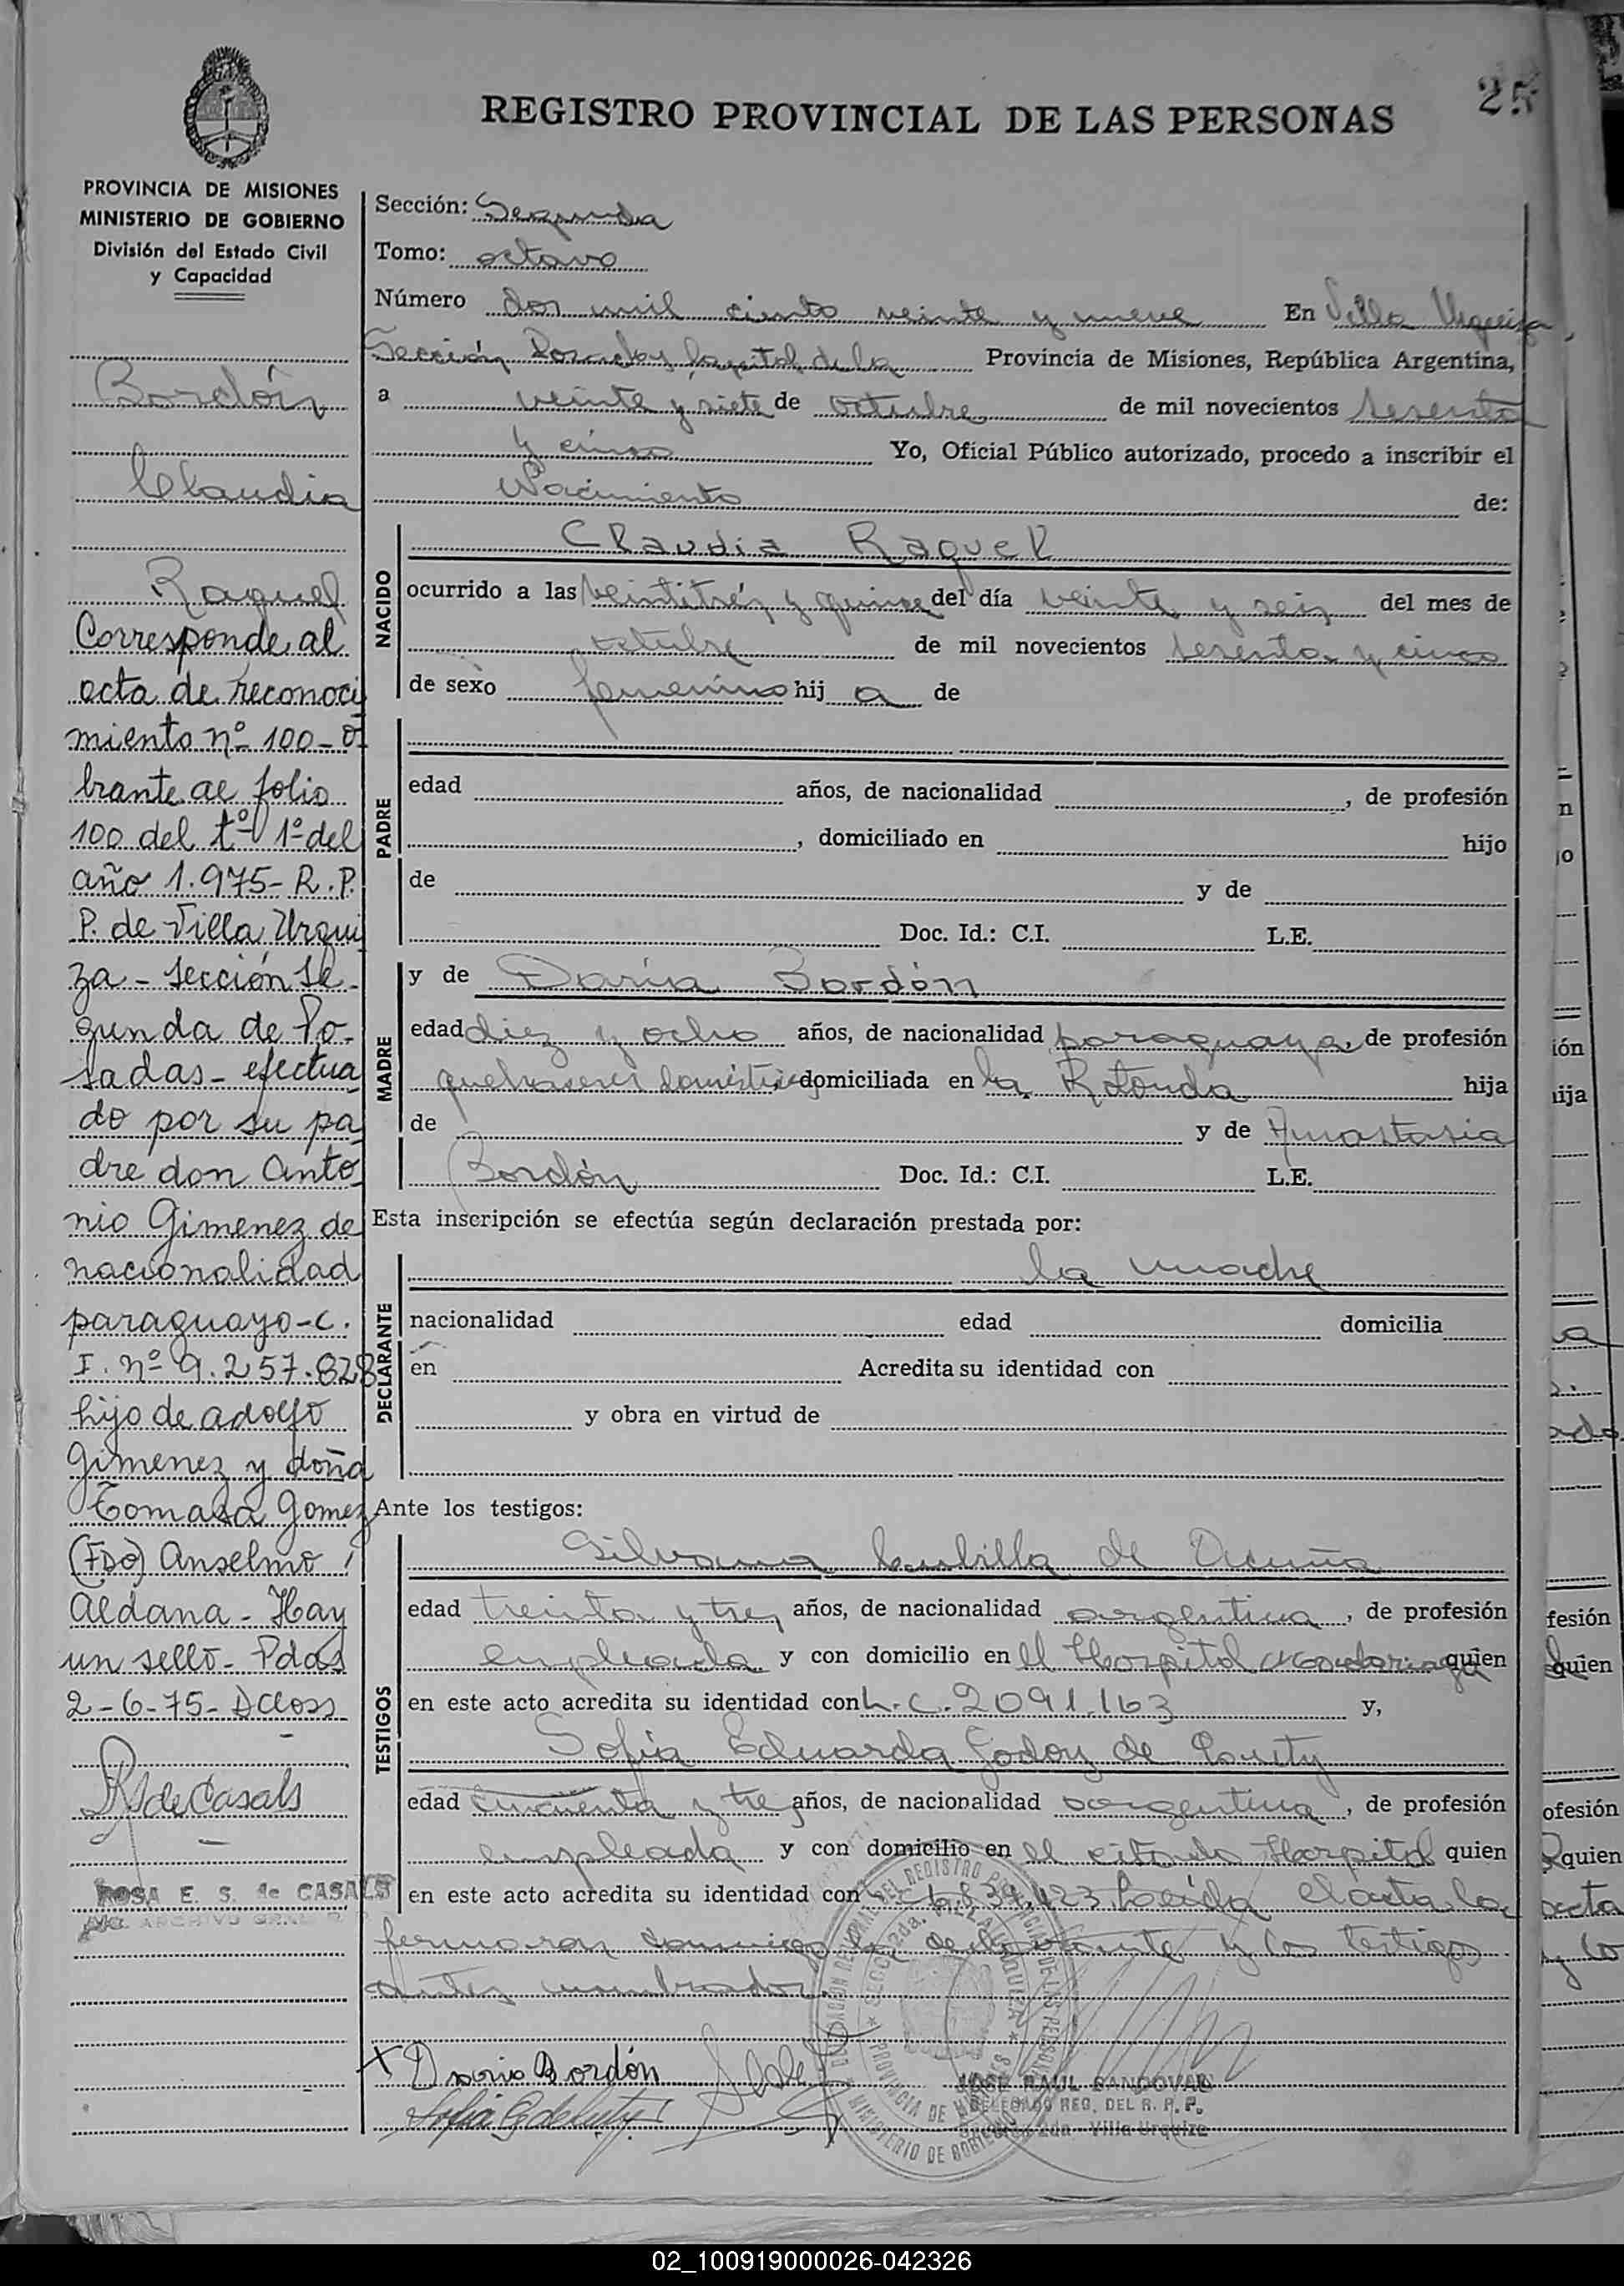 25
REGISTRO PROVINCIAL DE LAS PERSONAS
PROVINCIA DE MISIONES
MINISTERIO DE GOBIERNO
División del Estado Civil
y Capacidad
Bordón
Claudia
Raquel
Corresponde al
acta de reconoci
miento nº 100-o
brante al folio
100 del tº 1º del
año 1.975- R.P.
P. de Villa Urqui
za - Sección Se-
gunda de Po-
sadas - efectua
do por su pa
dre don Anto
nio Gimenez de
nacionalidad
paraguayo-C.
I. nº 9.257.828
hijo de adolfo
Gimenez y doña
Tomasa Gomez
(FDO) Anselmo
Aldana - Hay
un sello - Pdas
2-6-75- DCloss
R S de Casals
ROSA E. S. de CASALS
Sección: Segunda
Tomo: octavo
Número dos mil ciento veinte y nueve En Villa Urquiza,
Sección Posadas Capital de la Provincia de Misiones, República Argentina,
a veinte y siete de octubre de mil novecientos sesenta
y cinco Yo, Oficial Público autorizado, procedo a inscribir el
Nacimiento de:
NACIDO
Claudia Raquel
ocurrido a las veintitrés y quince del día veinte y seis del mes de
octubre de mil novecientos sesenta y cinco
de sexo femenino hij a de
PADRE
edad años, de nacionalidad , de profesión
, domiciliado en hijo
de y de
Doc. Id.: C.I. L.E.
MADRE
y de Daría Bordón
edad diez y ocho años, de nacionalidad paraguaya, de profesión
quehaceres domésticos domiciliada en La Rotonda hija
de y de Anastasia
Bordón Doc. Id.: C.I. L.E.
Esta inscripción se efectúa según declaración prestada por:
DECLARANTE
la madre
nacionalidad edad domicilia
en Acredita su identidad con
y obra en virtud de
Ante los testigos:
TESTIGOS
Silvana de Acuña
edad treinta y tres años, de nacionalidad argentina, de profesión
empleada y con domicilio en el Hospital Madariaga quien
en este acto acredita su identidad con L.C. 2091.163 y,
Sofia Eduarda Godoy de
edad cincuenta y tres años, de nacionalidad argentina, de profesión
empleada y con domicilio en el citado Hospital quien
en este acto acredita su identidad con Leída el acta la
firmaron conmigo la declarante y los testigos
antes nombrados.
X Dario Bordón
JOSE RAUL SANDOVAL
DELEGADO REG. DEL R. P. P.
Sección 2da. - Villa Urquiza
02_100919000026-042326